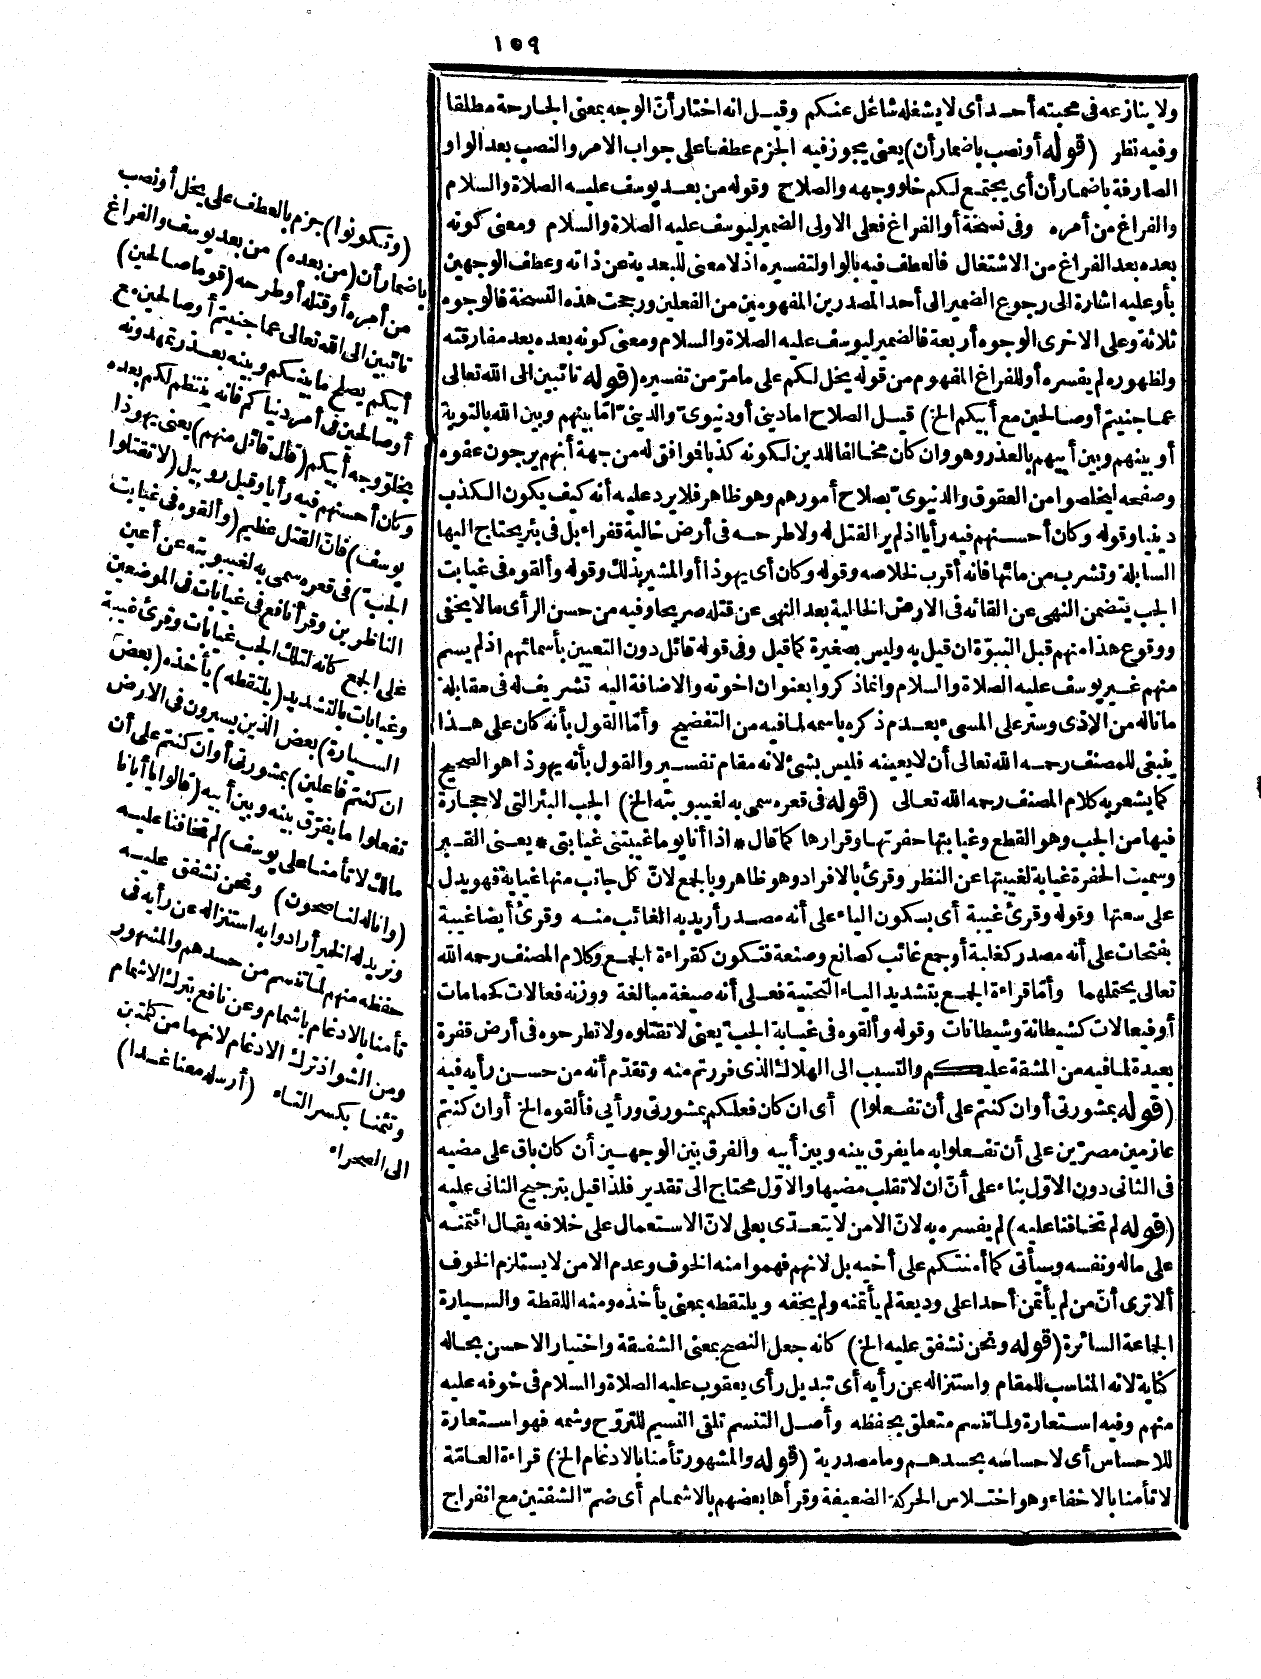 ١٥٩
ولا ينازعه فى محبته أحد أى لا يشغله شاغل عنكم وقيل انه اختار أنّ الوجه بمعنى الجارحة مطلقا
وفيه نظر (قوله أو نصب باضمار أن) يعنى يجوز فيه الجزم عطفا على جواب الامر والنصب بعد الواو
الصارفة باضمار أن أى يجتمع لكم خلو وجهه والصلاح وقوله من بعد يوسف عليه الصلاة والسلام
والفراغ من أمره وفى نسخة أو الفراغ فعلى الاولى الضمير ليوسف عليه الصلاة والسلام ومعنى كونه
بعده بعد الفراغ من الاشتغال فالعطف فيه بالواو لتفسيره اذ لا معنى للبعدية عن ذاته وعطف الوجهين
بأو عليه اشارة الى رجوع الضمير الى أحد المصدرين المفهومين من الفعلين ورجحت هذه النسخة فالوجوه
ثلاثة وعلى الاخرى الوجوه أربعة فالضمير ليوسف عليه الصلاة والسلام ومعنى كونه بعده بعد مفارقته
ولظهوره لم يفسره أو للفراغ المفهوم من قوله يخل لكم على ما مرّ من تفسيره (قوله تائبين الى الله تعالى
عما جنيتم أو صالحين مع أبيكم الخ) قيل الصلاح اما دينى أو دنيوىّ والدينىّ امّا بينهم وبين الله بالتوبة
أو بينهم وبين أبيهم بالعذر وهو وان كان مخالفا للدين لكونه كذبا فوافق له من جهة أنهم يرجون عفوه
وصفحه ليخلصوا من العقوق والدنيوىّ بصلاح أمورهم وهو ظاهر فلا يرد عليه أنه كيف يكون الكذب
دينيا وقوله وكان أحسنهم فيه رأيا اذ لم ير القتل له ولا طرحه فى أرض خالية قفراء بل فى بئر يحتاج اليها
السابلة وتشرب من مائها فانه أقرب لخلاصه وقوله وكان أى يهوذا أو المشير بذلك وقوله وألقوه فى غيابت
الجب يتضمن النهى عن القائه فى الارض الخالية بعد النهى عن قتله صريحا وفيه من حسن الرأى ما لا يخفى
ووقوع هذا منهم قبل النبوّة ان قيل به وليس بصغيرة كما قيل وفى قوله قائل دون التعيين بأسمائهم اذ لم يسم
منهم غير يوسف عليه الصلاة والسلام وانما ذكروا بعنوان اخوته والاضافة اليه تشريف له فى مقابلة
ما ناله من الاذى وستر على المسىء بعدم ذكره باسمه لما فيه من التفضيح وأمّا القول بأنه كان على هذا
ينبغى للمصنف رحمه الله تعالى أن لا يعينه فليس بشئ لانه مقام تفسير والقول بأنه يهوذا هو الصحيح
كما يشعر به كلام المصنف رحمه الله تعالى (قوله فى قعره سمى به لغيبوبته الخ) الجب البئر التى لا حجارة
فيها من الجب وهو القطع وغيابتها حفرتها وقرارها كما قال * اذا أنا يوما غيبتنى غيابتى * يعنى القبر
وسميت الحفرة غيابة لغيبتها عن النظر وقرئ بالافراد وهو ظاهر وبالجمع لانّ كل جانب منها غيابة فهو يدل
على سعتها وقوله وقرئ غيبة أى بسكون الياء على أنه مصدر أريد به الغائب منه وقرئ أيضا غيبة
بفتحات على أنه مصدر كغلبة أو جمع غائب كصانع وصنعة فتكون كقراءة الجمع وكلام المصنف رحمه الله
تعالى يحتملهما وأمّا قراءة الجمع بتشديد الياء التحتية فعلى أنه صيغة مبالغة ووزنه فعالات كحمامات
أو فيعالات كشيطانة وشيطانات وقوله وألقوه فى غيابة الجبّ يعنى لا تقتلوه ولا تطرحوه فى أرض قفرة
بعيدة لما فيه من المشقة عليكم والتسبب الى الهلاك الذى فررتم منه وتقدّم أنه من حسن رأيه فيه
(قوله بمشورتى أو ان كنتم على أن تفعلوا) أى ان كان فعلكم بمشورتى ورأيى فألقوه الخ أو ان كنتم
عازمين مصرّين على أن تفعلوا به ما يفرق بينه وبين أبيه والفرق بين الوجهين أن كان باق على مضيه
فى الثانى دون الاوّل بناء على أنّ ان لا تقلب مضيها والاوّل محتاج الى تقدير فلذا قيل بترجيح الثانى عليه
(قوله لم تخافنا عليه) لم يفسره به لانّ الامن لا يتعدّى بعلى لانّ الاستعمال على خلافه يقال ائتمنه
على ماله ونفسه وسيأتى كما أمنتكم على أخيه بل لانهم فهموا منه الخوف وعدم الامن لا يستلزم الخوف
ألا ترى أنّ من لم يأتمن أحدا على وديعة لم يأتمنه ولم يخفه ويلتقطه بمعنى يأخذه ومنه اللقطة والسيارة
الجماعة السائرة (قوله ونحن نشفق عليه الخ) كانه جعل النصح بمعنى الشفقة واختيار الاحسن بحاله
كناية لانه المناسب للمقام واستنزاله عن رأيه أى تبديل رأى يعقوب عليه الصلاة والسلام فى خوفه عليه
منهم وفيه استعارة ولما تنسم متعلق بحفظه وأصل التنسم تلقى النسيم للتروّح وشمه فهو استعارة
للاحساس أى لاحساسه بحسدهم وما مصدرية (قوله والمشهور تأمنا بالادغام الخ) قراءة العامّة
لا تأمنا بالاخفاء وهو اختلاس الحركة الضعيفة وقرأها بعضهم بالاشمام أى ضمّ الشفتين مع انفراج
(وتكونوا) جزم بالعطف على يخل أو نصب
باضمار أن (من بعده) من بعد يوسف والفراغ
من أمره أو قتله أو طرحه (قوما صالحين)
تائبين الى الله تعالى عما جنيتم أو صالحين مع
أبيكم يصلح ما بينكم وبينه بعذر تمهدونه
أو صالحين فى أمر دنياكم فانه ينتظم لكم بعده
بخلو وجه أبيكم (قال قائل منهم) يعنى يهوذا
وكان أحسنهم فيه رأيا وقيل روبيل (لا تقتلوا
يوسف) فانّ القتل عظيم (وألقوه فى غيابت
الجبّ) فى قعره سمى به لغيبوبته عن أعين
الناظرين وقرأ نافع فى غيابات فى الموضعين
على الجمع كانه لتلك الجب غيابات وقرئ غيبة
وغيابات بالتشديد (يلتقطه) يأخذه (بعض
السيارة) بعض الذين يسيرون فى الارض
(ان كنتم فاعلين) بمشورتى أو ان كنتم على أن
تفعلوا ما يفرّق بينه وبين أبيه (قالوا يا أبانا
مالك لا تأمنا على يوسف) لم تخافنا عليه
(وانا له لناصحون) ونحن نشفق عليه
ونريد له الخير أرادوا به استنزاله عن رأيه فى
حفظه منهم لما تنسم من حسدهم والمشهور
تأمنا بالادغام باشمام وعن نافع بترك الاشمام
ومن الشواذ ترك الادغام لانهما من كلمتين
وتئمنا بكسر التاء (أرسله معنا غدا)
الى الصحراء